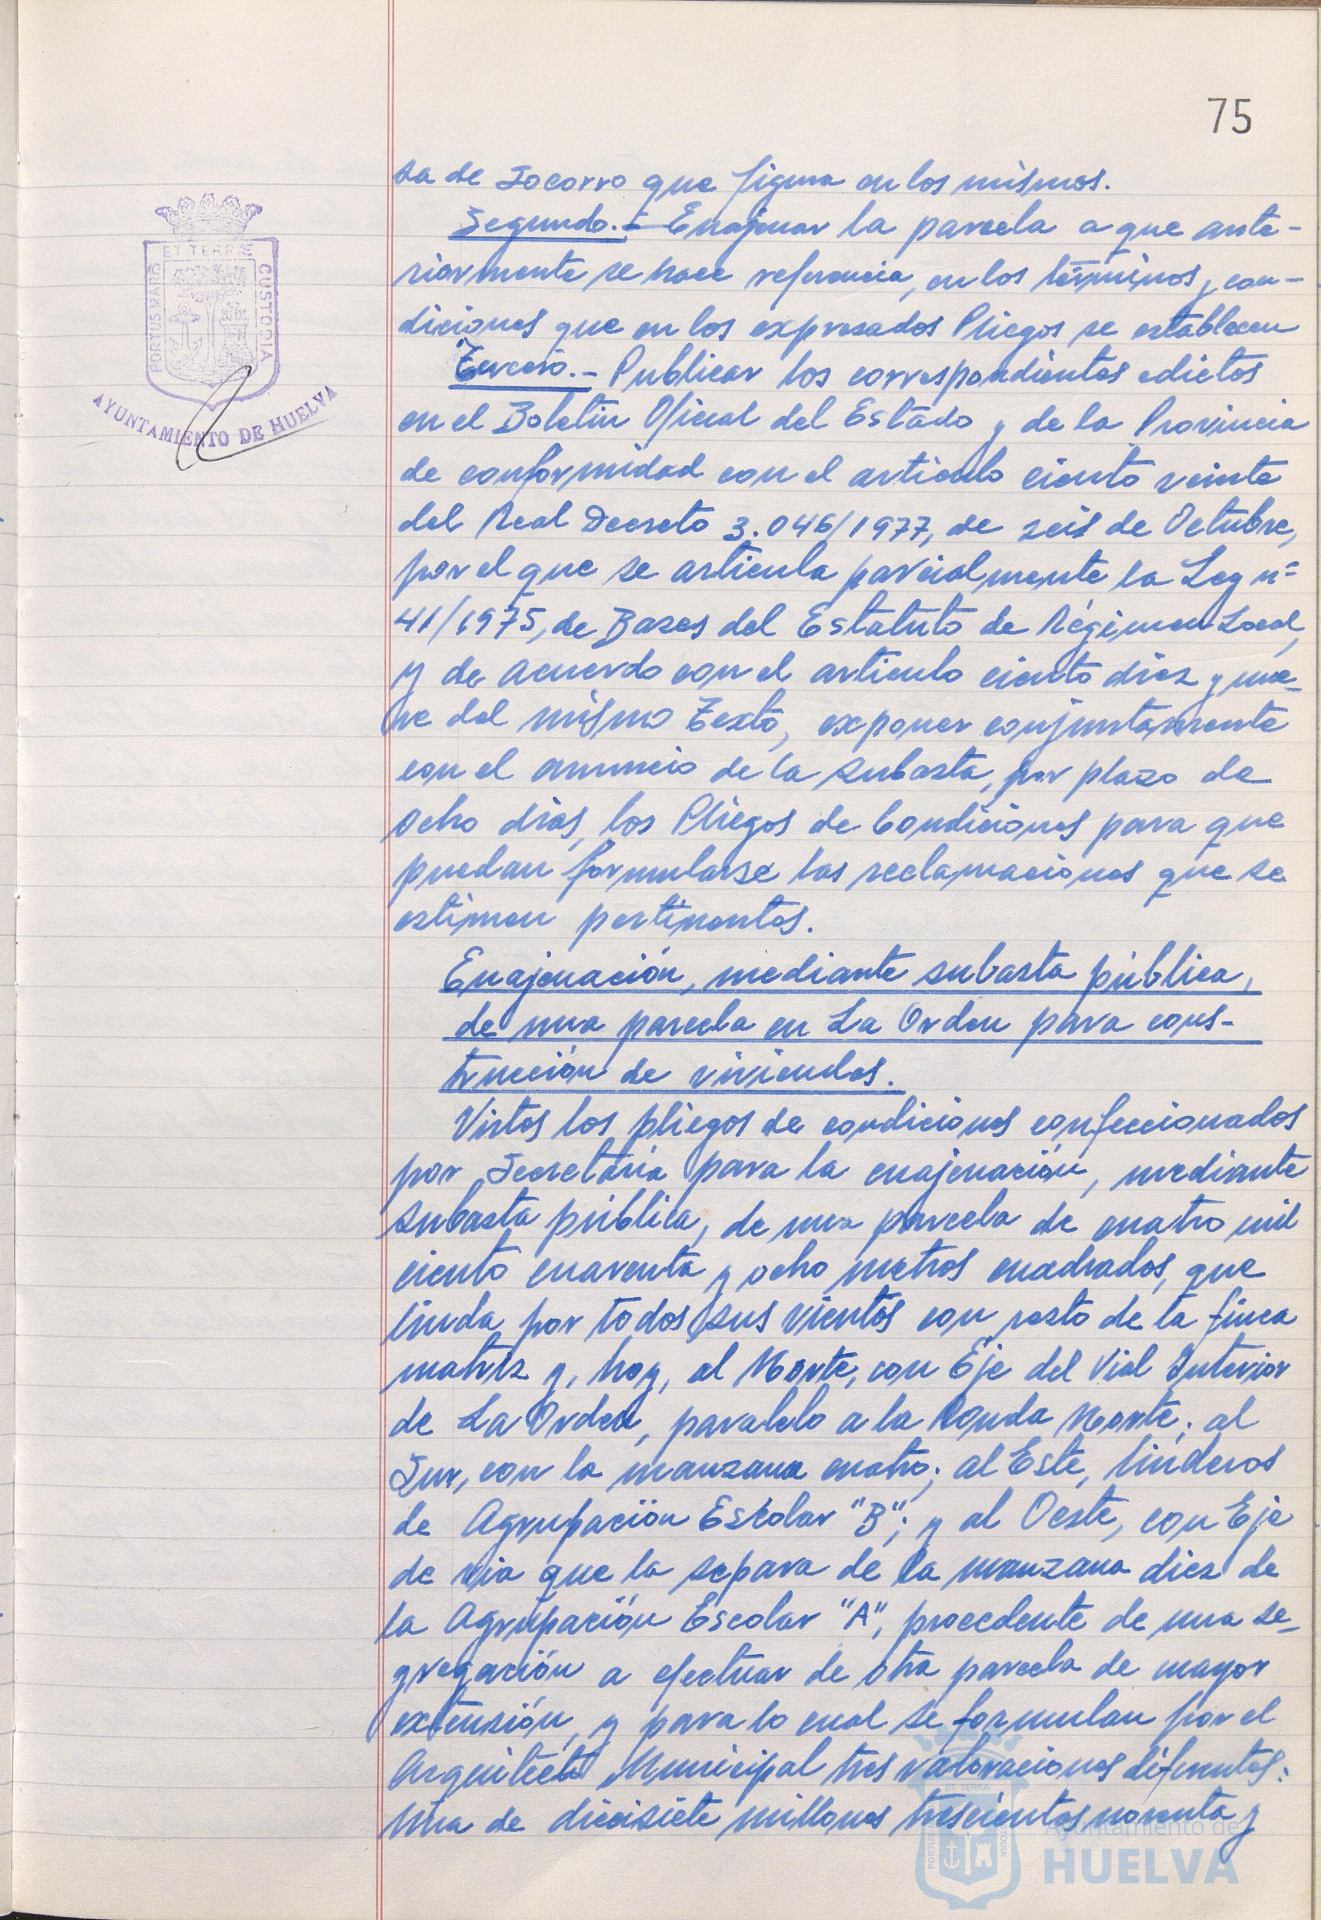 75
PORTUS MARIS
ET TERRÆ
CUSTODIA
AYUNTAMIENTO DE HUELVA
sa de Socorro que figura en los mismos.
Segundo.- Enajenar la parcela a que ante-
riormente se hace referencia, en los términos y con-
diciones que en los expresados Pliegos se establecen
Tercero.- Publicar los correspondientes edictos
en el Boletín Oficial del Estado y de la Provincia
de conformidad con el artículo ciento veinte
del Real Decreto 3.046/1977, de seis de Octubre,
por el que se articula parcialmente la Ley nº
41/1975, de Bases del Estatuto de Régimen Local,
y de acuerdo con el artículo ciento diez y nue-
ve del mismo Texto, exponer conjuntamente
con el anuncio de la subasta, por plazo de
ocho días, los Pliegos de Condiciones para que
puedan formularse las reclamaciones que se
estimen pertinentes.
Enajenación, mediante subasta pública,
de una parcela en La Orden para cons-
trucción de viviendas.
Vistos los pliegos de condiciones confeccionados
por Secretaría para la enajenación, mediante
subasta pública, de una parcela de cuatro mil
ciento cuarenta y ocho metros cuadrados, que
linda por todos sus vientos con resto de la finca
matriz y, hoy, al Norte, con Eje del Vial Interior
de La Orden, paralelo a la Ronda Norte; al
Sur, con la manzana cuatro; al Este, linderos
de Agrupación Escolar "B"; y al Oeste, con Eje
de vía que la separa de la manzana diez de
la Agrupación Escolar "A", procedente de una se-
gregación a efectuar de otra parcela de mayor
extensión, y para lo cual se formulan por el
Arquitecto Municipal tres valoraciones diferentes:
Una de diecisiete millones trescientos noventa y
Ayuntamiento de
HUELVA